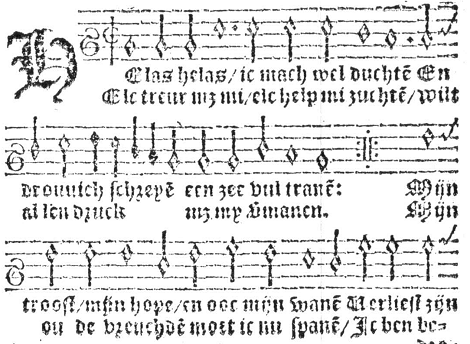 HElas helas/ ic mach wel duchtē En
Elc treur mz mi/elc help mi zuchtē/wilt
drouuich schreyē een zee vul tranē: Mijn
al len druck mz my vmanen. Mijn
troost/mijn hope/en ooc mijn wanē Verliest zijn
ou de vreuchdē moet ic nu spanē/ Ic ben be=